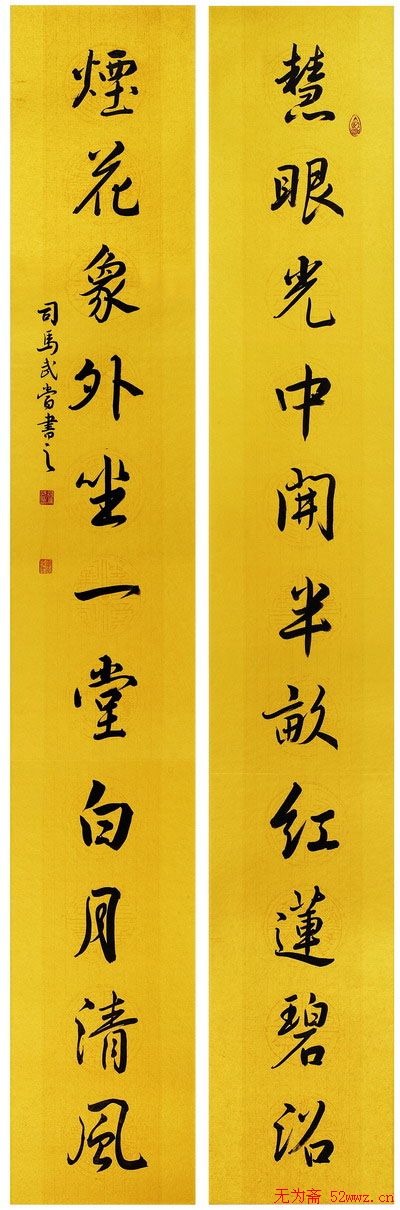 慧眼光中開半畝紅蓮碧沼
煙花象外坐一堂白月清風
司馬武當書之
无为斋 52wwz.cn